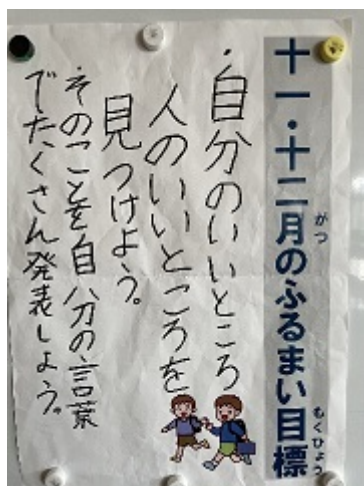 十一・十二月のふるまい目標
がつ
もくひょう
・自分のいいところ
人のいいところを
見つけよう。
そのことを自分の言葉
でたくさん発表しよう。